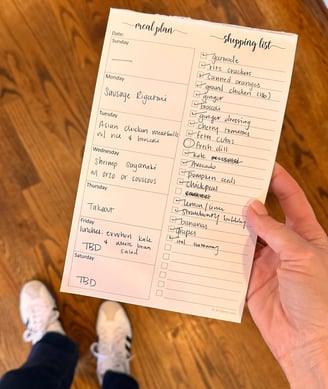 meal plan
Date:
Sunday
Monday
Sausage Rigatoni
Tuesday
Asian chicken meatballs
w/ rice & broccoli
Wednesday
Shrimp Saganaki
w/ orzo or couscous
Thursday
Takeout
Friday
lunches: crunchy kale
& white bean
salad
TBD
Saturday
TBD
shopping list
ritz crackers
canned oranges
ground chicken (1lb)
ginger
broccoli
ginger dressing
cherry tomatoes
feta cubes
fresh dill
kale
avocado
pumpkin seeds
chickpeas
lemon/lime
bananas
grapes